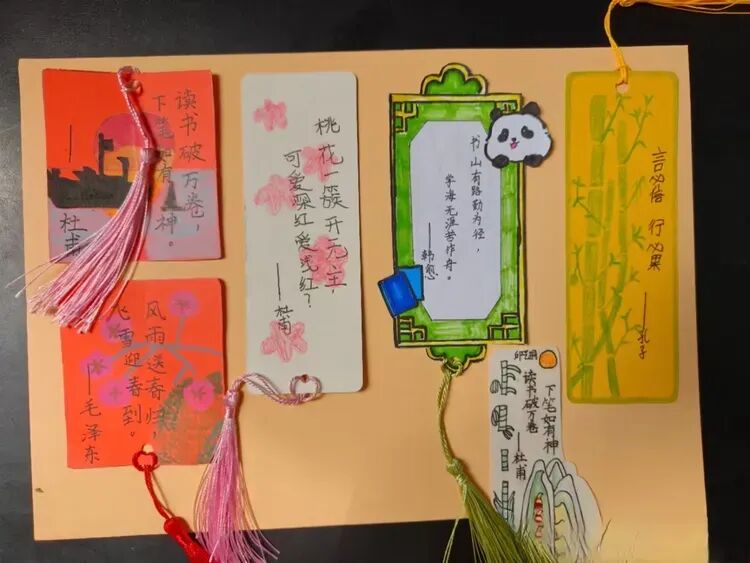 读书破万卷，
下笔如有神。
——杜甫
风雨送春归，
飞雪迎春到。
——毛泽东
桃花一簇开无主，
可爱深红爱浅红？
——杜甫
书山有路勤为径，
学海无涯苦作舟。
——韩愈
下笔如有神
读书破万卷
——杜甫
言必信 行必果
——孔子